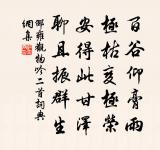 百谷仰膏雨
極枯亦極榮
安得此甘澤
聊且振群生
邵雍觀物吟二首詞典
網集